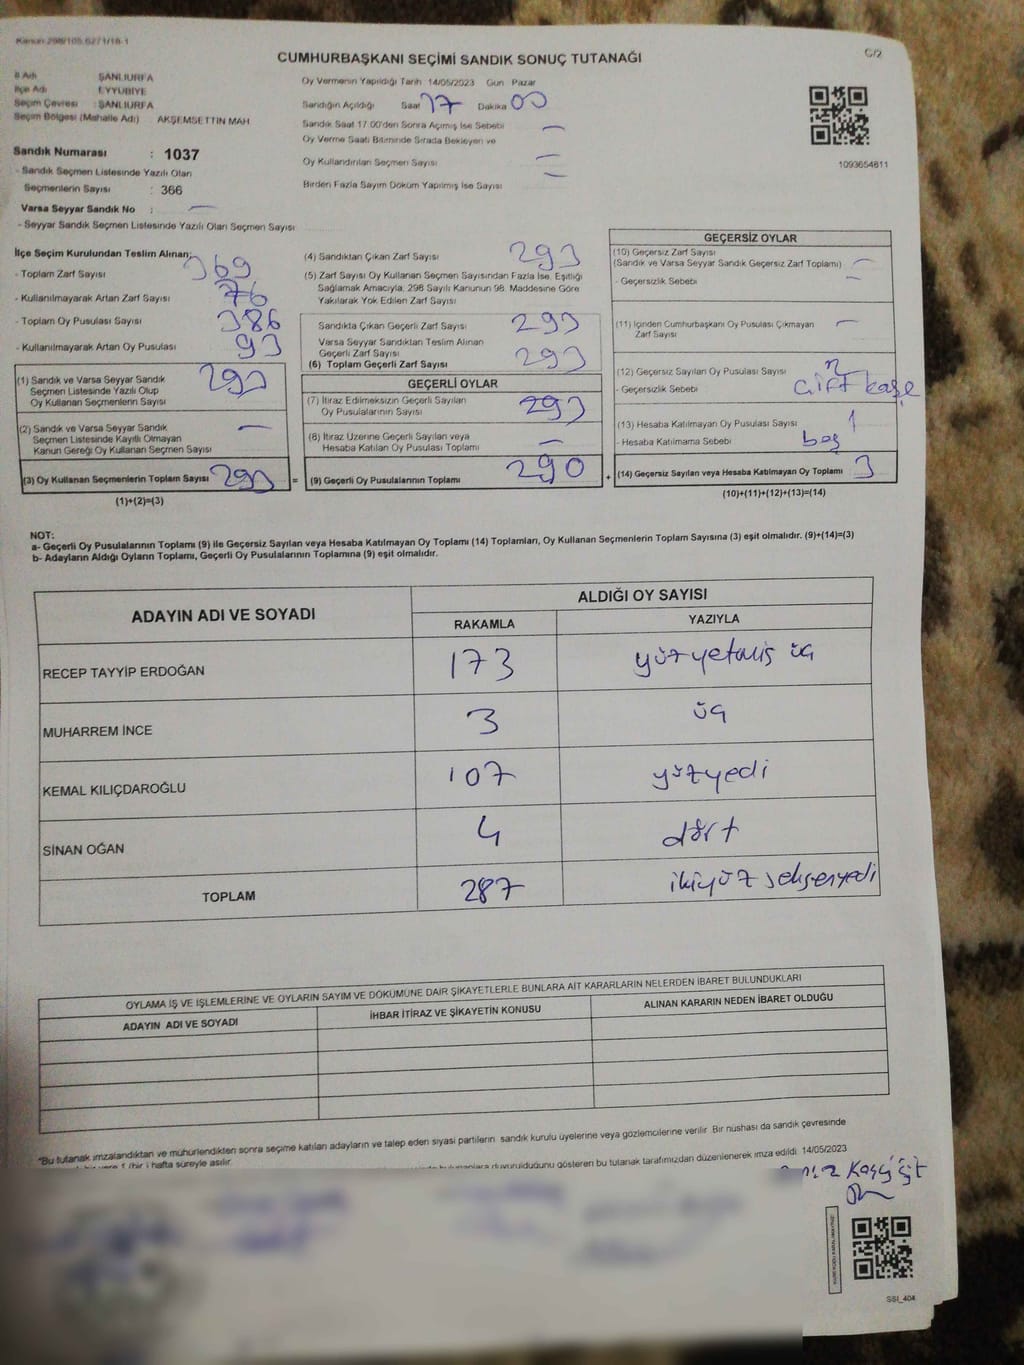 Kanun 298/105,6271/18-1
C/2
CUMHURBAŞKANI SEÇİMİ SANDIK SONUÇ TUTANAĞI
İl Adı : ŞANLIURFA
İlçe Adı : EYYÜBİYE
Seçim Çevresi : ŞANLIURFA
Seçim Bölgesi (Mahalle Adı) AKŞEMSETTİN MAH
Sandık Numarası : 1037
- Sandık Seçmen Listesinde Yazılı Olan
Seçmenlerin Sayısı : 366
Varsa Seyyar Sandık No : —
- Seyyar Sandık Seçmen Listesinde Yazılı Olan Seçmen Sayısı
Oy Vermenin Yapıldığı Tarih 14/05/2023 Gün Pazar
Sandığın Açıldığı Saat 17 Dakika 00
Sandık Saat 17.00'den Sonra Açılmış İse Sebebi —
Oy Verme Saati Bitiminde Sırada Bekleyen ve
Oy Kullandırılan Seçmen Sayısı —
Birden Fazla Sayım Döküm Yapılmış İse Sayısı —
1093654811
İlçe Seçim Kurulundan Teslim Alınan;
- Toplam Zarf Sayısı 369
- Kullanılmayarak Artan Zarf Sayısı 76
- Toplam Oy Pusulası Sayısı 386
- Kullanılmayarak Artan Oy Pusulası 93
(1) Sandık ve Varsa Seyyar Sandık 293
Seçmen Listesinde Yazılı Olup
Oy Kullanan Seçmenlerin Sayısı
(2) Sandık ve Varsa Seyyar Sandık —
Seçmen Listesinde Kayıtlı Olmayan
Kanun Gereği Oy Kullanan Seçmen Sayısı
(3) Oy Kullanan Seçmenlerin Toplam Sayısı 293 =
(1)+(2)=(3)
(4) Sandıktan Çıkan Zarf Sayısı 293
(5) Zarf Sayısı Oy Kullanan Seçmen Sayısından Fazla İse, Eşitliği
Sağlamak Amacıyla, 298 Sayılı Kanunun 98. Maddesine Göre
Yakılarak Yok Edilen Zarf Sayısı
Sandıkta Çıkan Geçerli Zarf Sayısı 293
Varsa Seyyar Sandıktan Teslim Alınan
Geçerli Zarf Sayısı 293
(6) Toplam Geçerli Zarf Sayısı
GEÇERLİ OYLAR
(7) İtiraz Edilmeksizin Geçerli Sayılan 293
Oy Pusulalarının Sayısı
(8) İtiraz Üzerine Geçerli Sayılan veya —
Hesaba Katılan Oy Pusulası Toplamı
(9) Geçerli Oy Pusulalarının Toplamı 290 +
GEÇERSİZ OYLAR
(10) Geçersiz Zarf Sayısı —
(Sandık ve Varsa Seyyar Sandık Geçersiz Zarf Toplamı)
- Geçersizlik Sebebi —
(11) İçinden Cumhurbaşkanı Oy Pusulası Çıkmayan —
Zarf Sayısı
(12) Geçersiz Sayılan Oy Pusulası Sayısı 2
- Geçersizlik Sebebi çift kaşe
(13) Hesaba Katılmayan Oy Pusulası Sayısı 1
- Hesaba Katılmama Sebebi boş
(14) Geçersiz Sayılan veya Hesaba Katılmayan Oy Toplamı 3
(10)+(11)+(12)+(13)=(14)
NOT:
a- Geçerli Oy Pusulalarının Toplamı (9) ile Geçersiz Sayılan veya Hesaba Katılmayan Oy Toplamı (14) Toplamları, Oy Kullanan Seçmenlerin Toplam Sayısına (3) eşit olmalıdır. (9)+(14)=(3)
b- Adayların Aldığı Oyların Toplamı, Geçerli Oy Pusulalarının Toplamına (9) eşit olmalıdır.
ADAYIN ADI VE SOYADI
ALDIĞI OY SAYISI
RAKAMLA YAZIYLA
RECEP TAYYİP ERDOĞAN 173 yüzyetmiş üç
MUHARREM İNCE 3 üç
KEMAL KILIÇDAROĞLU 107 yüzyedi
SİNAN OĞAN 4 dört
TOPLAM 287 ikiyüz seksenyedi
OYLAMA İŞ VE İŞLEMLERİNE VE OYLARIN SAYIM VE DÖKÜMÜNE DAİR ŞİKAYETLERLE BUNLARA AİT KARARLARIN NELERDEN İBARET BULUNDUKLARI
ADAYIN ADI VE SOYADI İHBAR İTİRAZ VE ŞİKAYETİN KONUSU ALINAN KARARIN NEDEN İBARET OLDUĞU
*Bu tutanak imzalandıktan ve mühürlendikten sonra seçime katılan adayların ve talep eden siyasi partilerin sandık kurulu üyelerine veya gözlemcilerine verilir. Bir nüshası da sandık çevresinde
1 (bir) hafta süreyle asılır.
duyurulduğunu gösteren bu tutanak tarafımızdan düzenlenerek imza edildi. 14/05/2023
SSI_404